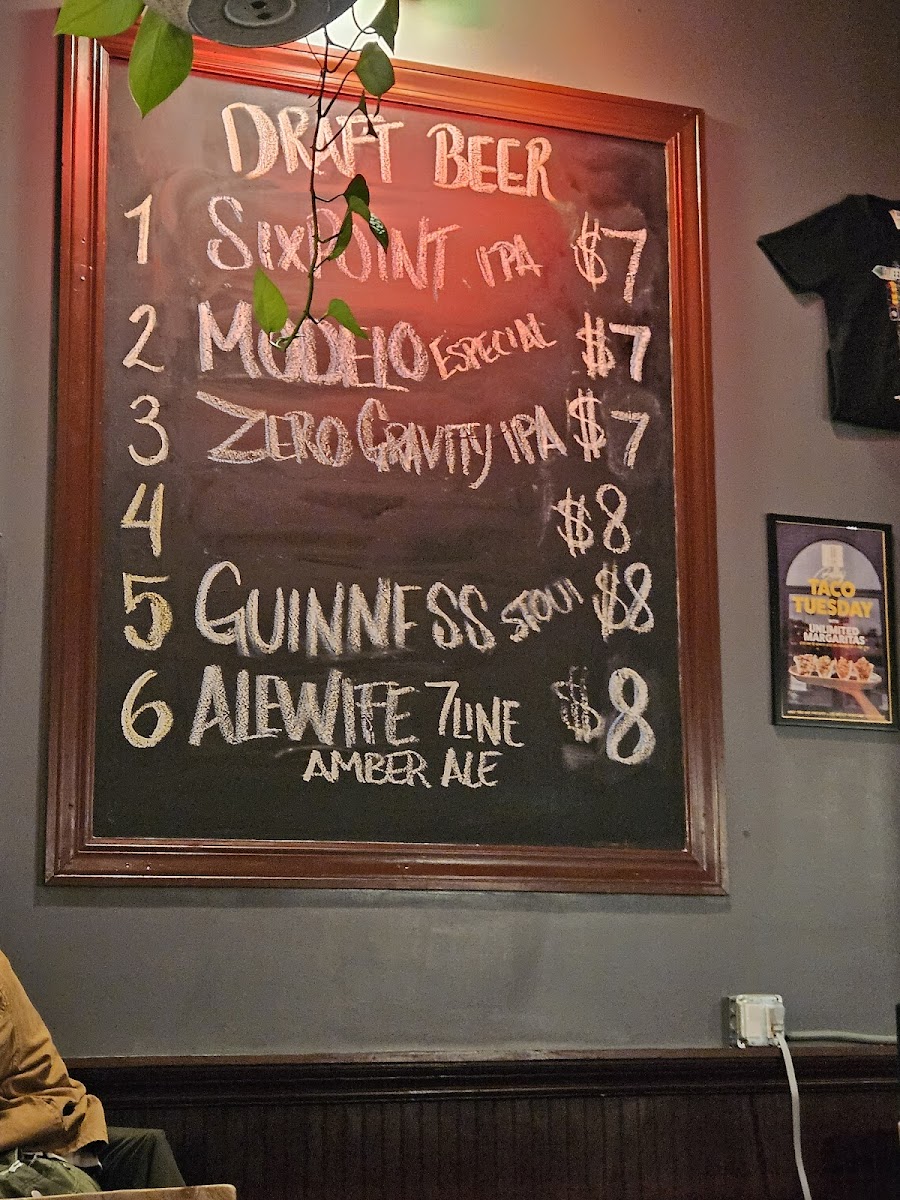 DRAFT BEER
1 SIXPOINT IPA $7
2 MODELO ESPECIAL $7
3 ZERO GRAVITY IPA $7
4 $8
5 GUINNESS STOUT $8
6 ALEWIFE 7LINE $8
AMBER ALE
TACO
TUESDAY
UNLIMITED
MARGARITAS